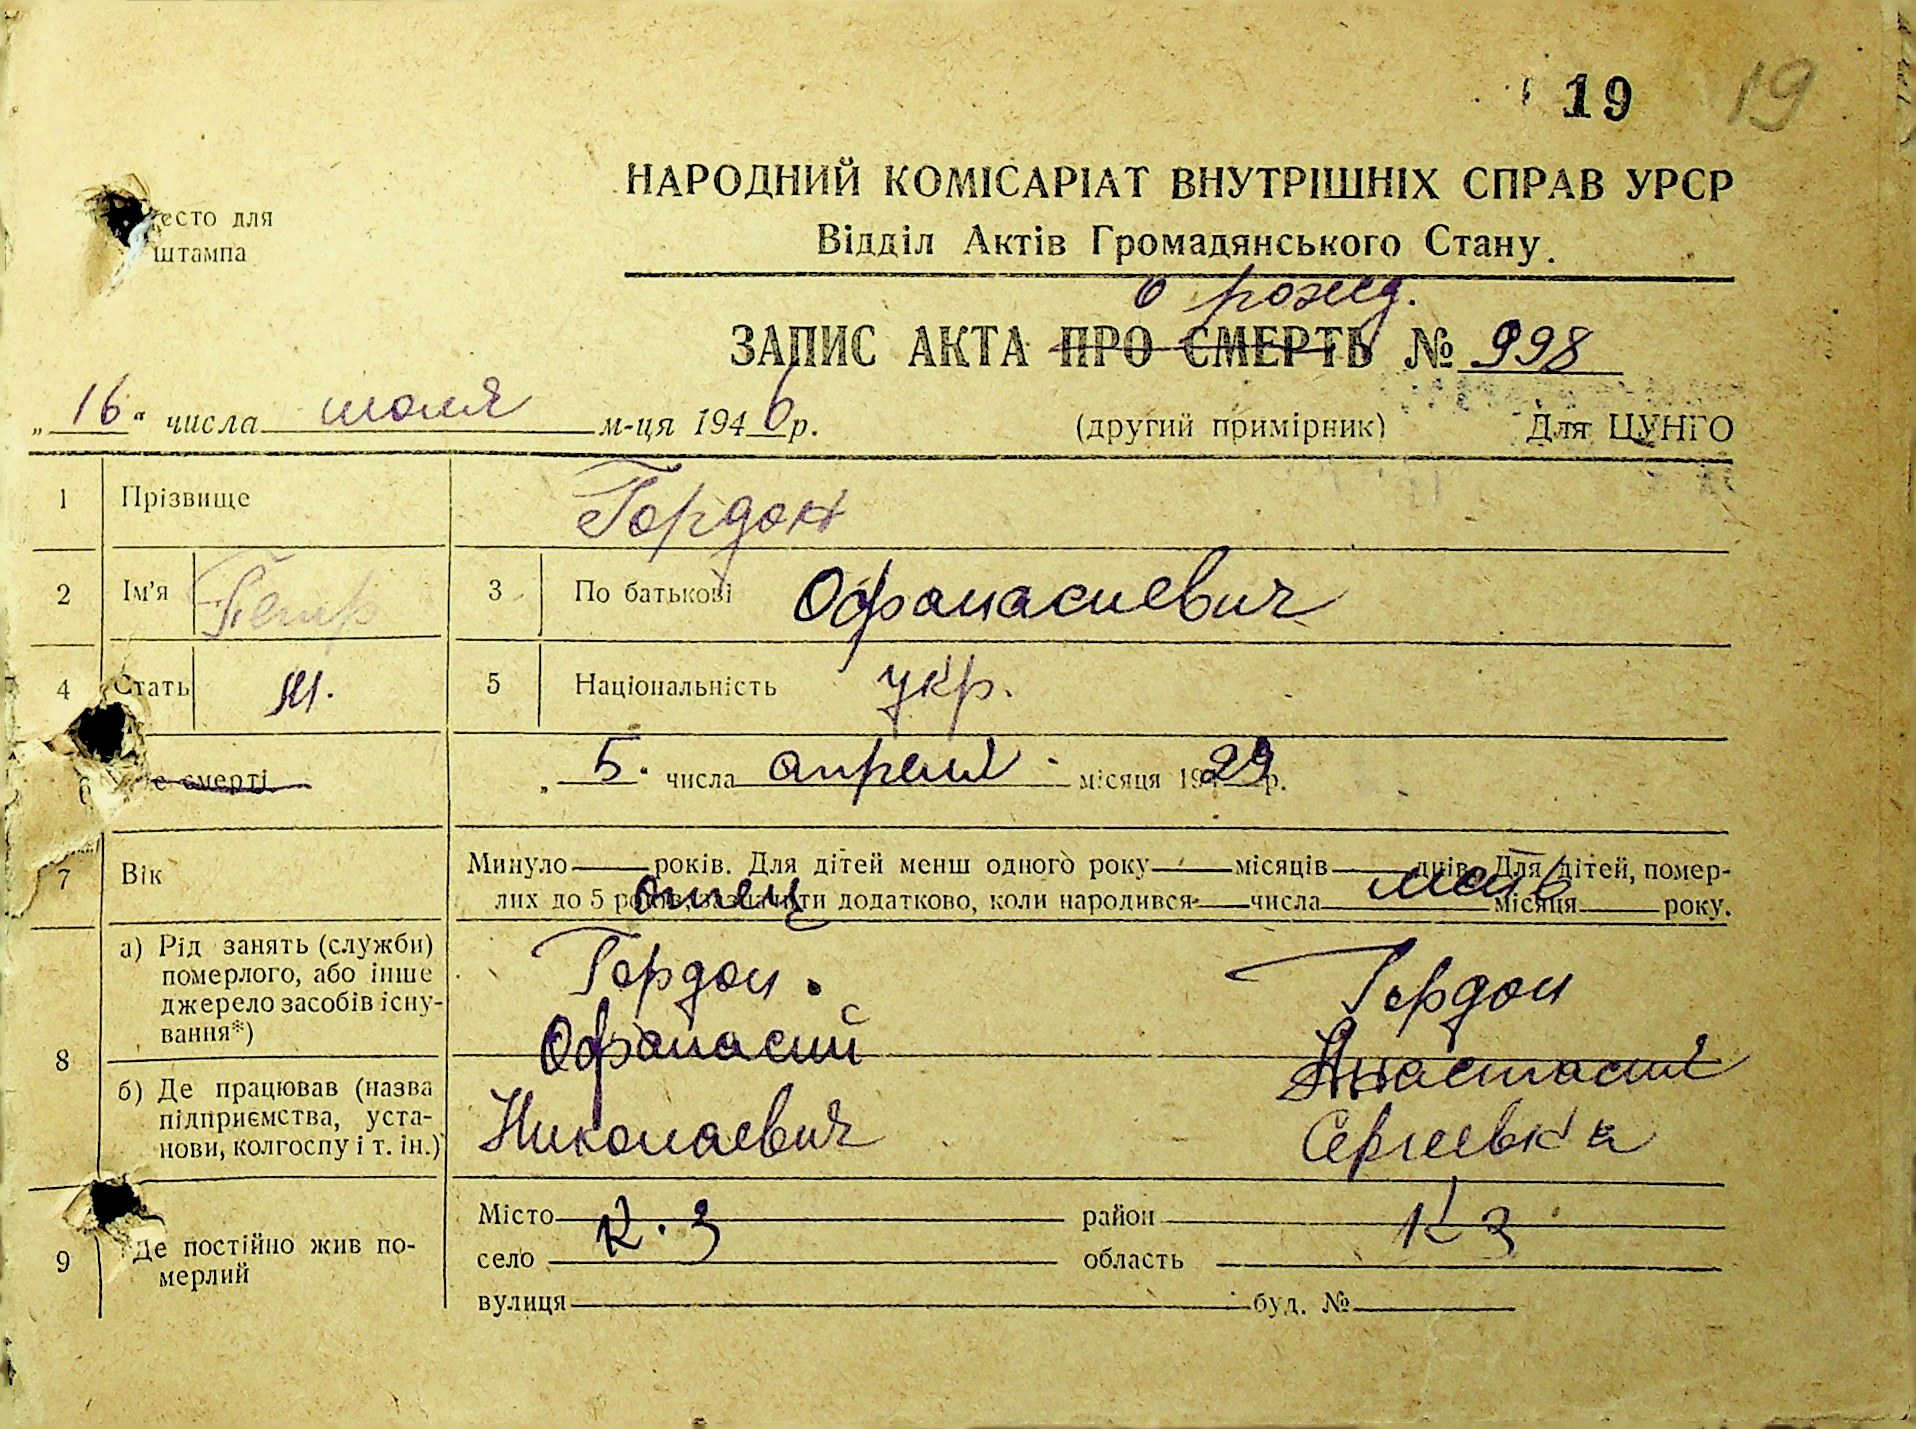 19 19
есто для
штампа
НАРОДНИЙ КОМІСАРІАТ ВНУТРІШНІХ СПРАВ УРСР
Відділ Актів Громадянського Стану.
о рожд.
ЗАПИС АКТА ПРО СМЕРТЬ № 998
„16" числа июля м-ця 1946 р. (другий примірник) Для ЦУНГО
1 Прізвище Гордон
2 Ім'я Петр 3 По батькові Офанасиевич
4 Стать м. 5 Національність укр.
6 е смерті „5" числа апреля місяця 1929 р.
7 Вік Минуло року. Для дітей менш одного року місяців днів. Для дітей, помер-
лих до 5 років, зазначити додатково, коли народився числа місяця року.
отец мать
8 а) Рід занять (служби) померлого, або інше джерело засобів існу-вання*)
Гордон Гордон
Офанасий Анастасия
б) Де працював (назва підприємства, уста-нови, колгоспу і т. ін.)
Николаевич Сергеевна
9 Де постійно жив по-мерлий
Місто К.З район К З
село область
вулиця буд. №